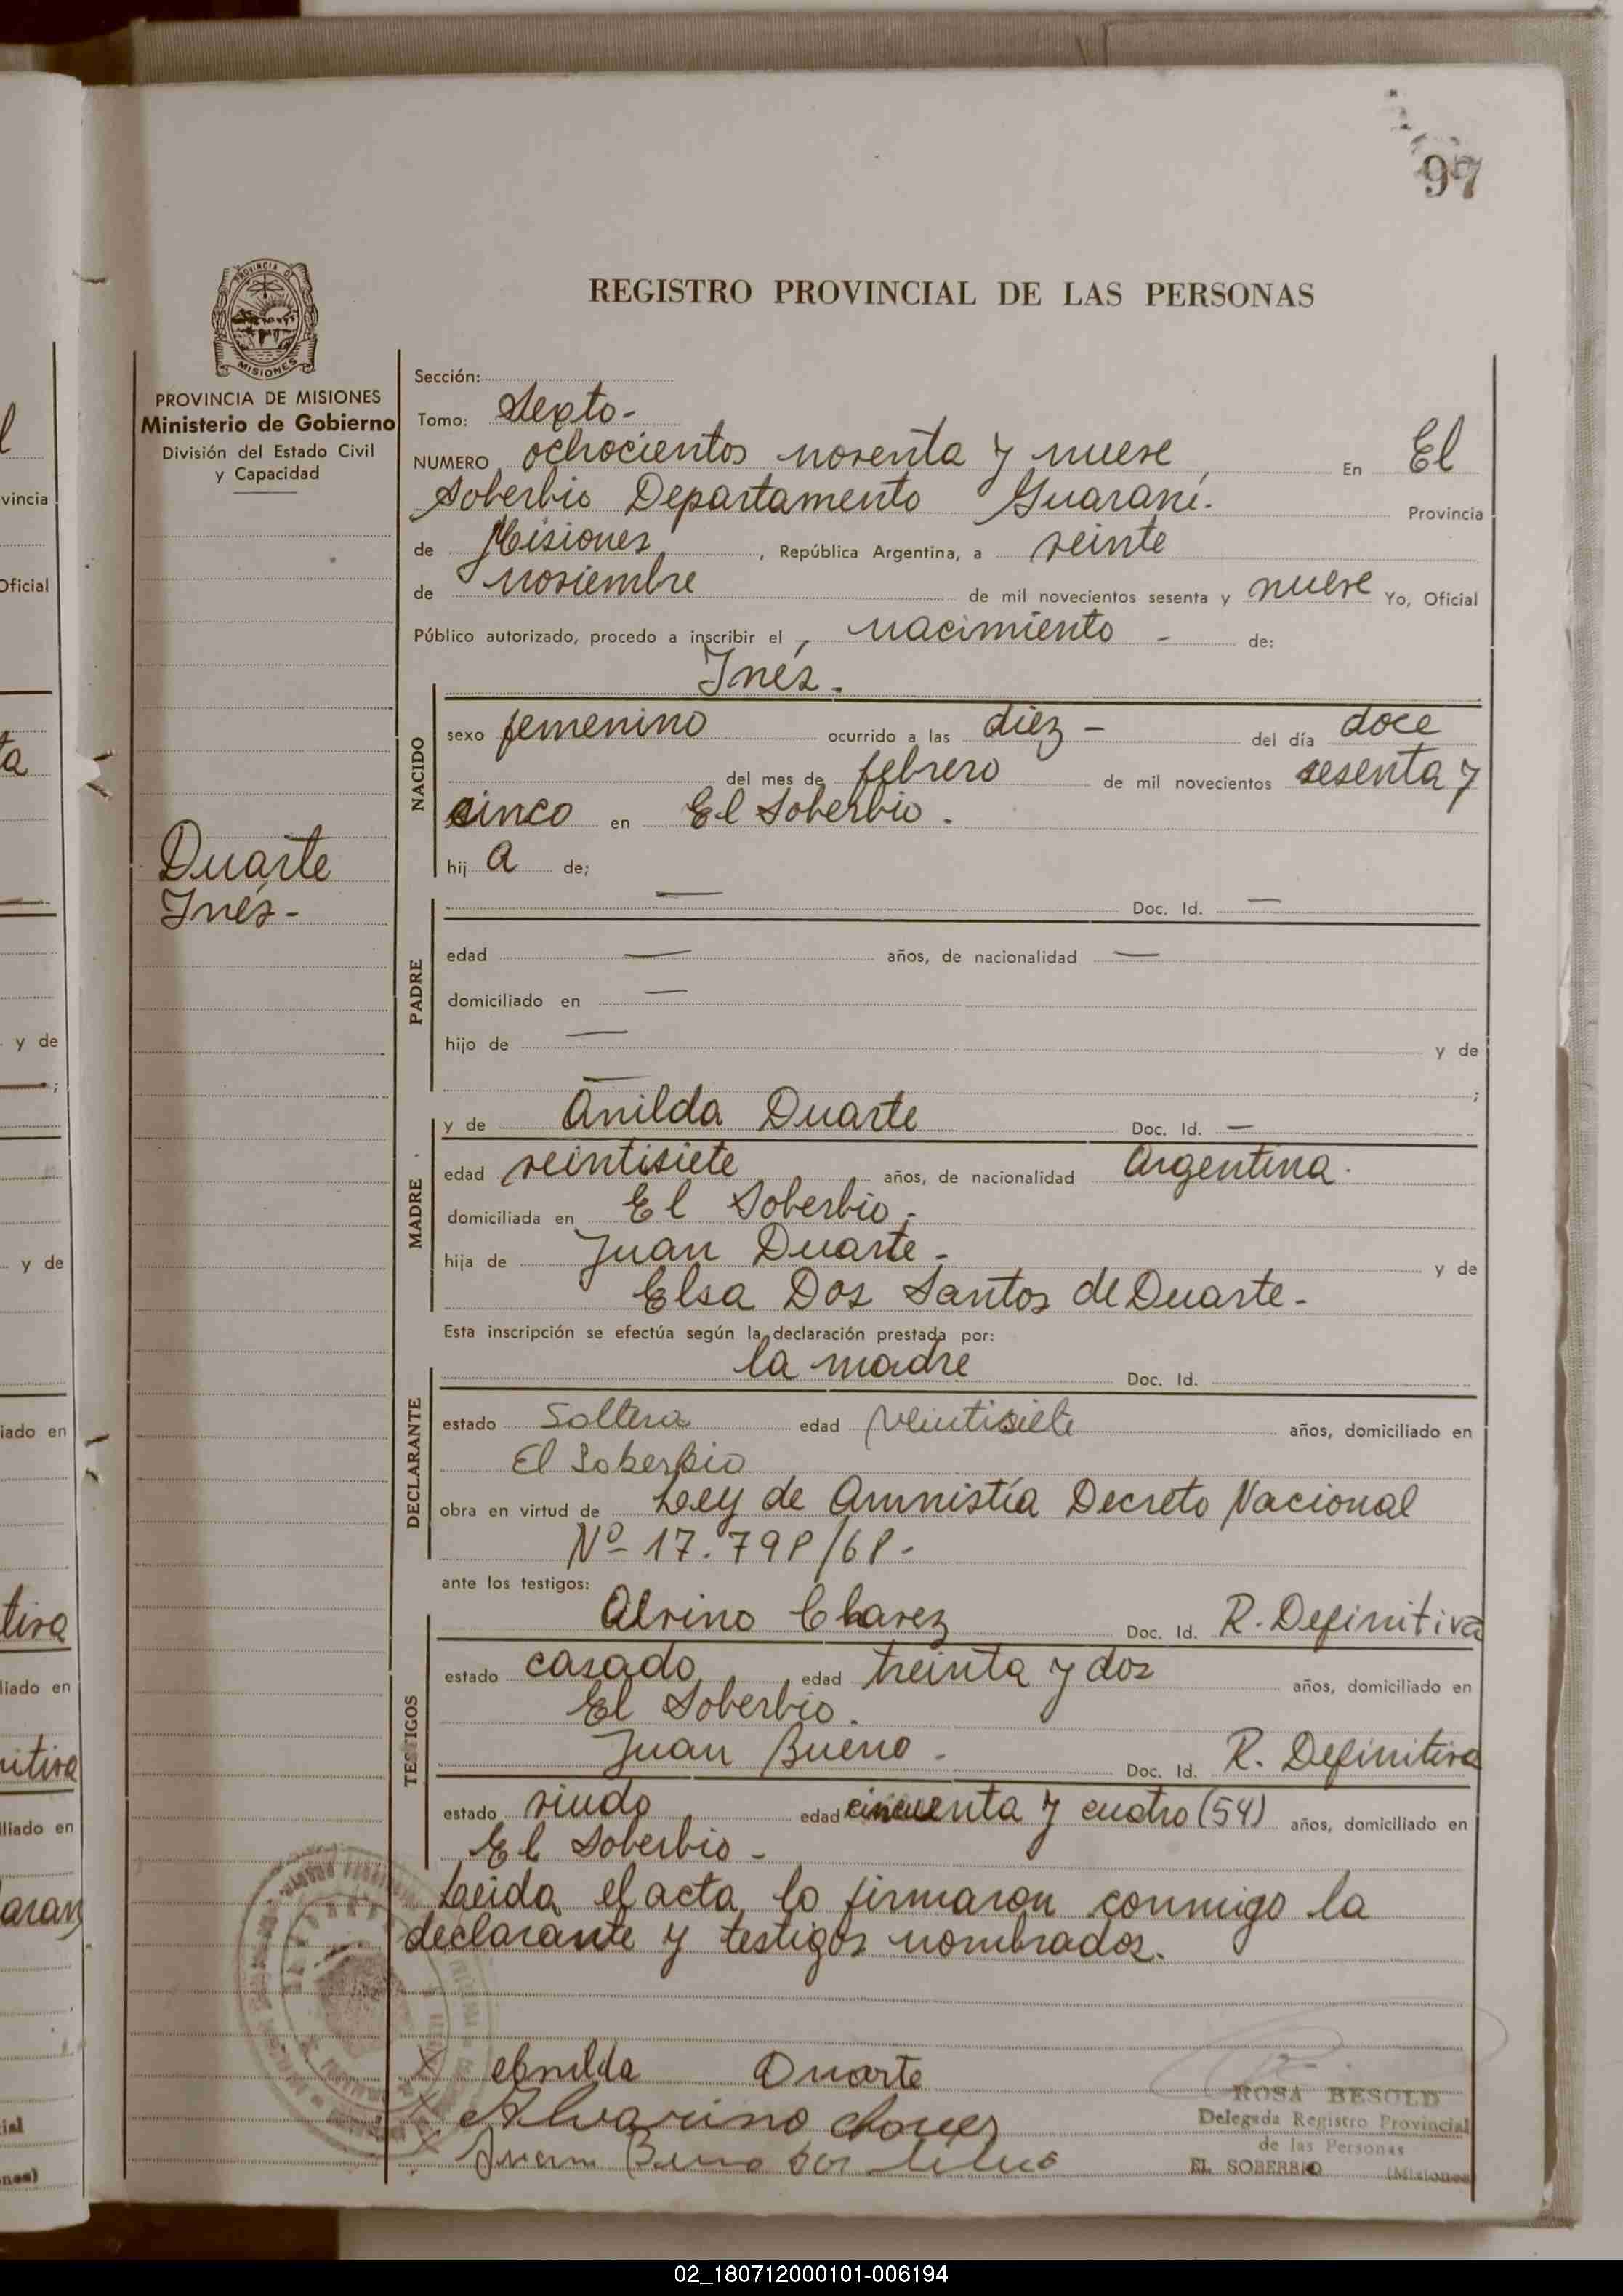 97
REGISTRO PROVINCIAL DE LAS PERSONAS
PROVINCIA DE MISIONES
Ministerio de Gobierno
División del Estado Civil
y Capacidad
Sección:
Tomo: Sexto-
NUMERO ochocientos noventa y nueve, En El
Soberbio Departamento Guaraní. Provincia
de Misiones, República Argentina, a veinte
de noviembre de mil novecientos sesenta y nueve Yo, Oficial
Público autorizado, procedo a inscribir el, nacimiento - de:
Inés.
NACIDO
sexo femenino ocurrido a las diez - del día doce
del mes de febrero de mil novecientos sesenta y
cinco en El Soberbio.
hij a de;
Duarte
Inés-
PADRE
— Doc. Id. —
edad — años, de nacionalidad —
domiciliado en —
hijo de — y de
— ;
MADRE
y de Anilda Duarte Doc. Id. —
edad veintisiete años, de nacionalidad Argentina.
domiciliada en El Soberbio.
hija de Juan Duarte- y de
Elsa Dos Santos de Duarte-
Esta inscripción se efectúa según la declaración prestada por:
la madre Doc. Id.
DECLARANTE
estado Soltera edad Veintisiete años, domiciliado en
El Soberbio
obra en virtud de Ley de Amnistía Decreto Nacional
Nº 17.798/68-
ante los testigos:
TESTIGOS
Alvino Chavez Doc. Id. R. Definitiva
estado casado, edad treinta y dos años, domiciliado en
El Soberbio.
Juan Bueno- Doc. Id. R. Definitiva
estado viudo, edad cincuenta y cuatro (54) años, domiciliado en
El Soberbio-
Leida el acta lo firmaron conmigo la
declarante y testigos nombrados.
X Anilda Duarte
X Alvarino
X Juan
ROSA BESOLD
Delegada Registro Provincial
de las Personas
EL SOBERBIO (Misiones)
02_180712000101-006194